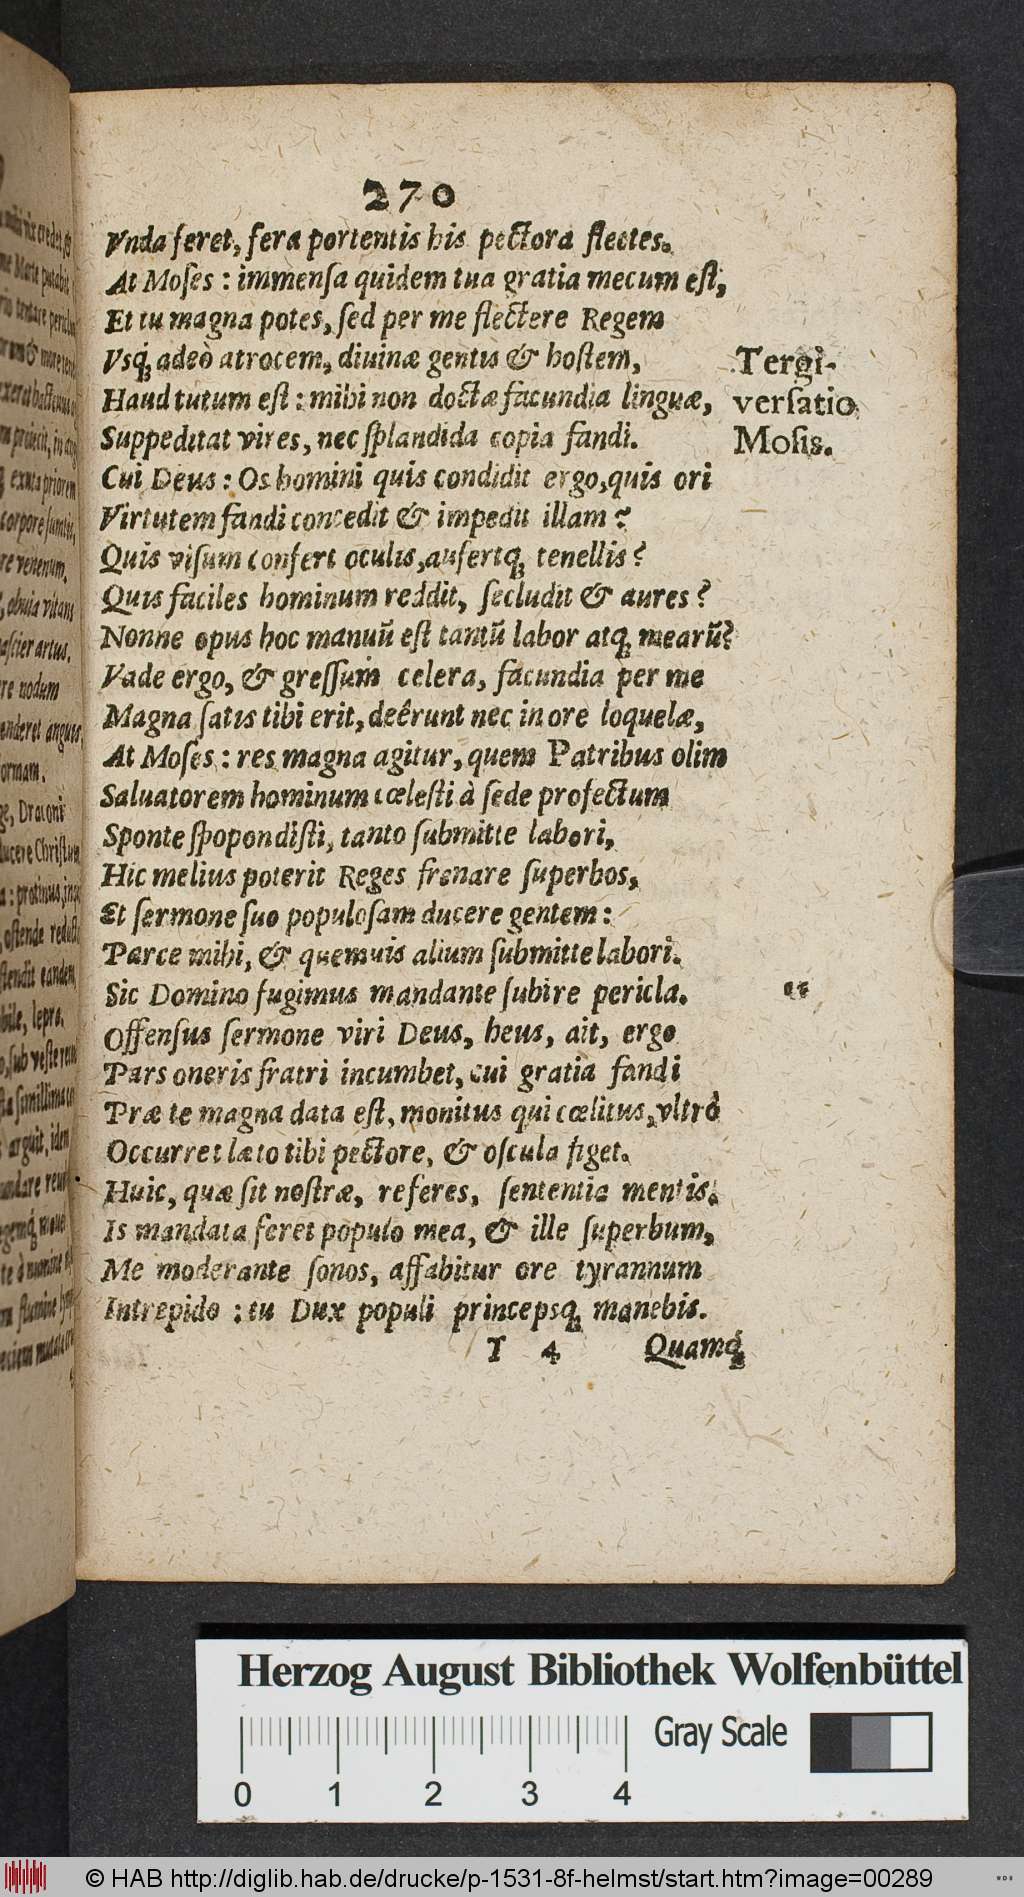 270
Vnda feret, fera portentis his pectora flectes.
At Moſes : immenſa quidem tua gratia mecum eſt,
Et tu magna potes, ſed per me flectere Regem
Vsq́; adeò atrocem, diuinæ gentis & hoſtem,
Haud tutum eſt : mihi non doctæ facundia linguæ,
Suppeditat vires, nec ſplandida copia fandi.
Tergi-
verſatio
Moſis.
Cui Deus : Os homini quis condidit ergo, quis ori
Virtutem fandi concedit & impedit illam ?
Quis viſum confert oculis, aufertq; tenellis ?
Quis faciles hominum reddit, ſecludit & aures ?
Nonne opus hoc manuũ eſt tantũ labor atq; mearũ?
Vade ergo, & greſſum celera, facundia per me
Magna ſatis tibi erit, deêrunt nec in ore loquelæ,
At Moſes : res magna agitur, quem Patribus olim
Saluatorem hominum cœleſti à ſede profectum
Sponte ſpopondiſti, tanto ſubmitte labori,
Hic melius poterit Reges frenare ſuperbos,
Et ſermone ſuo populoſam ducere gentem :
Parce mihi, & quemuis alium ſubmitte labori.
Sic Domino fugimus mandante ſubire pericla.
Offenſus ſermone viri Deus, heus, ait, ergo
Pars oneris fratri incumbet, cui gratia fandi
Præ te magna data eſt, monitus qui cœlitus, vltrò
Occurret læto tibi pectore, & oſcula figet.
Huic, quæ ſit noſtræ, referes, ſententia mentis.
Is mandata feret populo mea, & ille ſuperbum,
Me moderante ſonos, affabitur ore tyrannum
Intrepido : tu Dux populi princepsq; manebis.
T 4 Quamq́;
Herzog August Bibliothek Wolfenbüttel
Gray Scale
0 1 2 3 4
© HAB http://diglib.hab.de/drucke/p-1531-8f-helmst/start.htm?image=00289